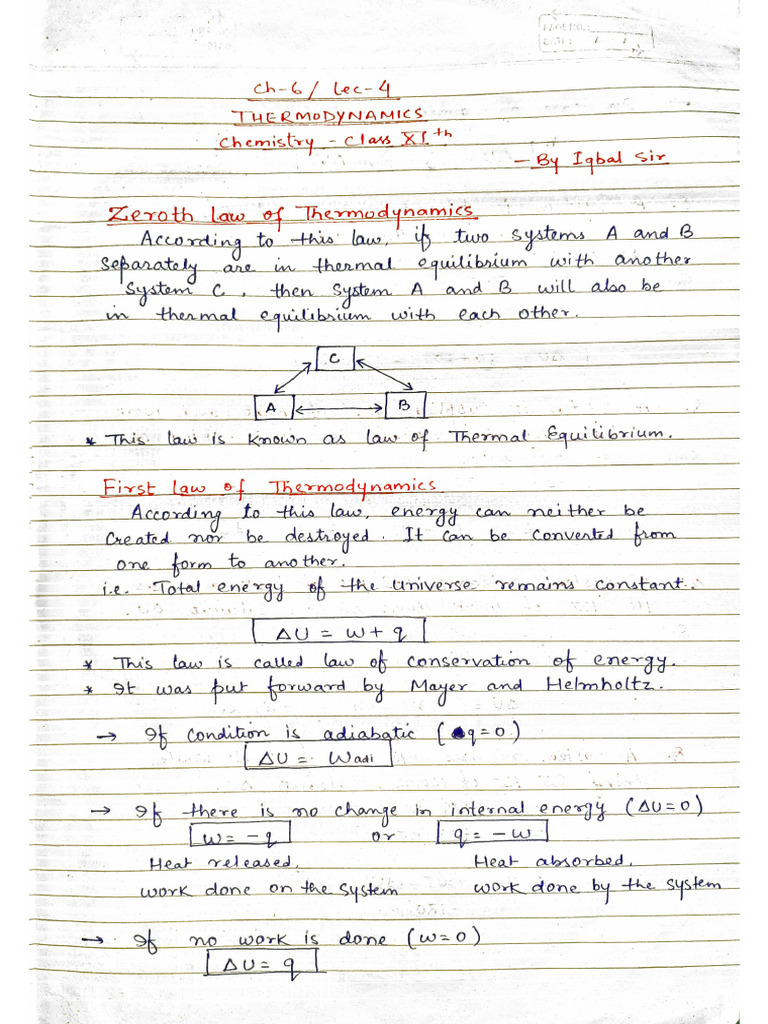 PAGE NO.:
DATE: / /
Ch-6 / Lec-4
THERMODYNAMICS
Chemistry - Class XIth
- By Iqbal Sir
Zeroth Law of Thermodynamics
According to this law, if two systems A and B
separately are in thermal equilibrium with another
system C, then system A and B will also be
in thermal equilibrium with each other.
C
A B
* This law is known as law of Thermal Equilibrium.
First Law of Thermodynamics
According to this law, energy can neither be
created nor be destroyed. It can be converted from
one form to another.
i.e. Total energy of the universe remains constant.
ΔU = w + q
* This law is called law of conservation of energy.
* It was put forward by Mayer and Helmholtz.
→ If condition is adiabatic (q=0)
ΔU = Wadi
→ If there is no change in internal energy (ΔU=0)
w = -q or q = -w
Heat released, Heat absorbed,
work done on the system work done by the system
→ If no work is done (w=0)
ΔU = q